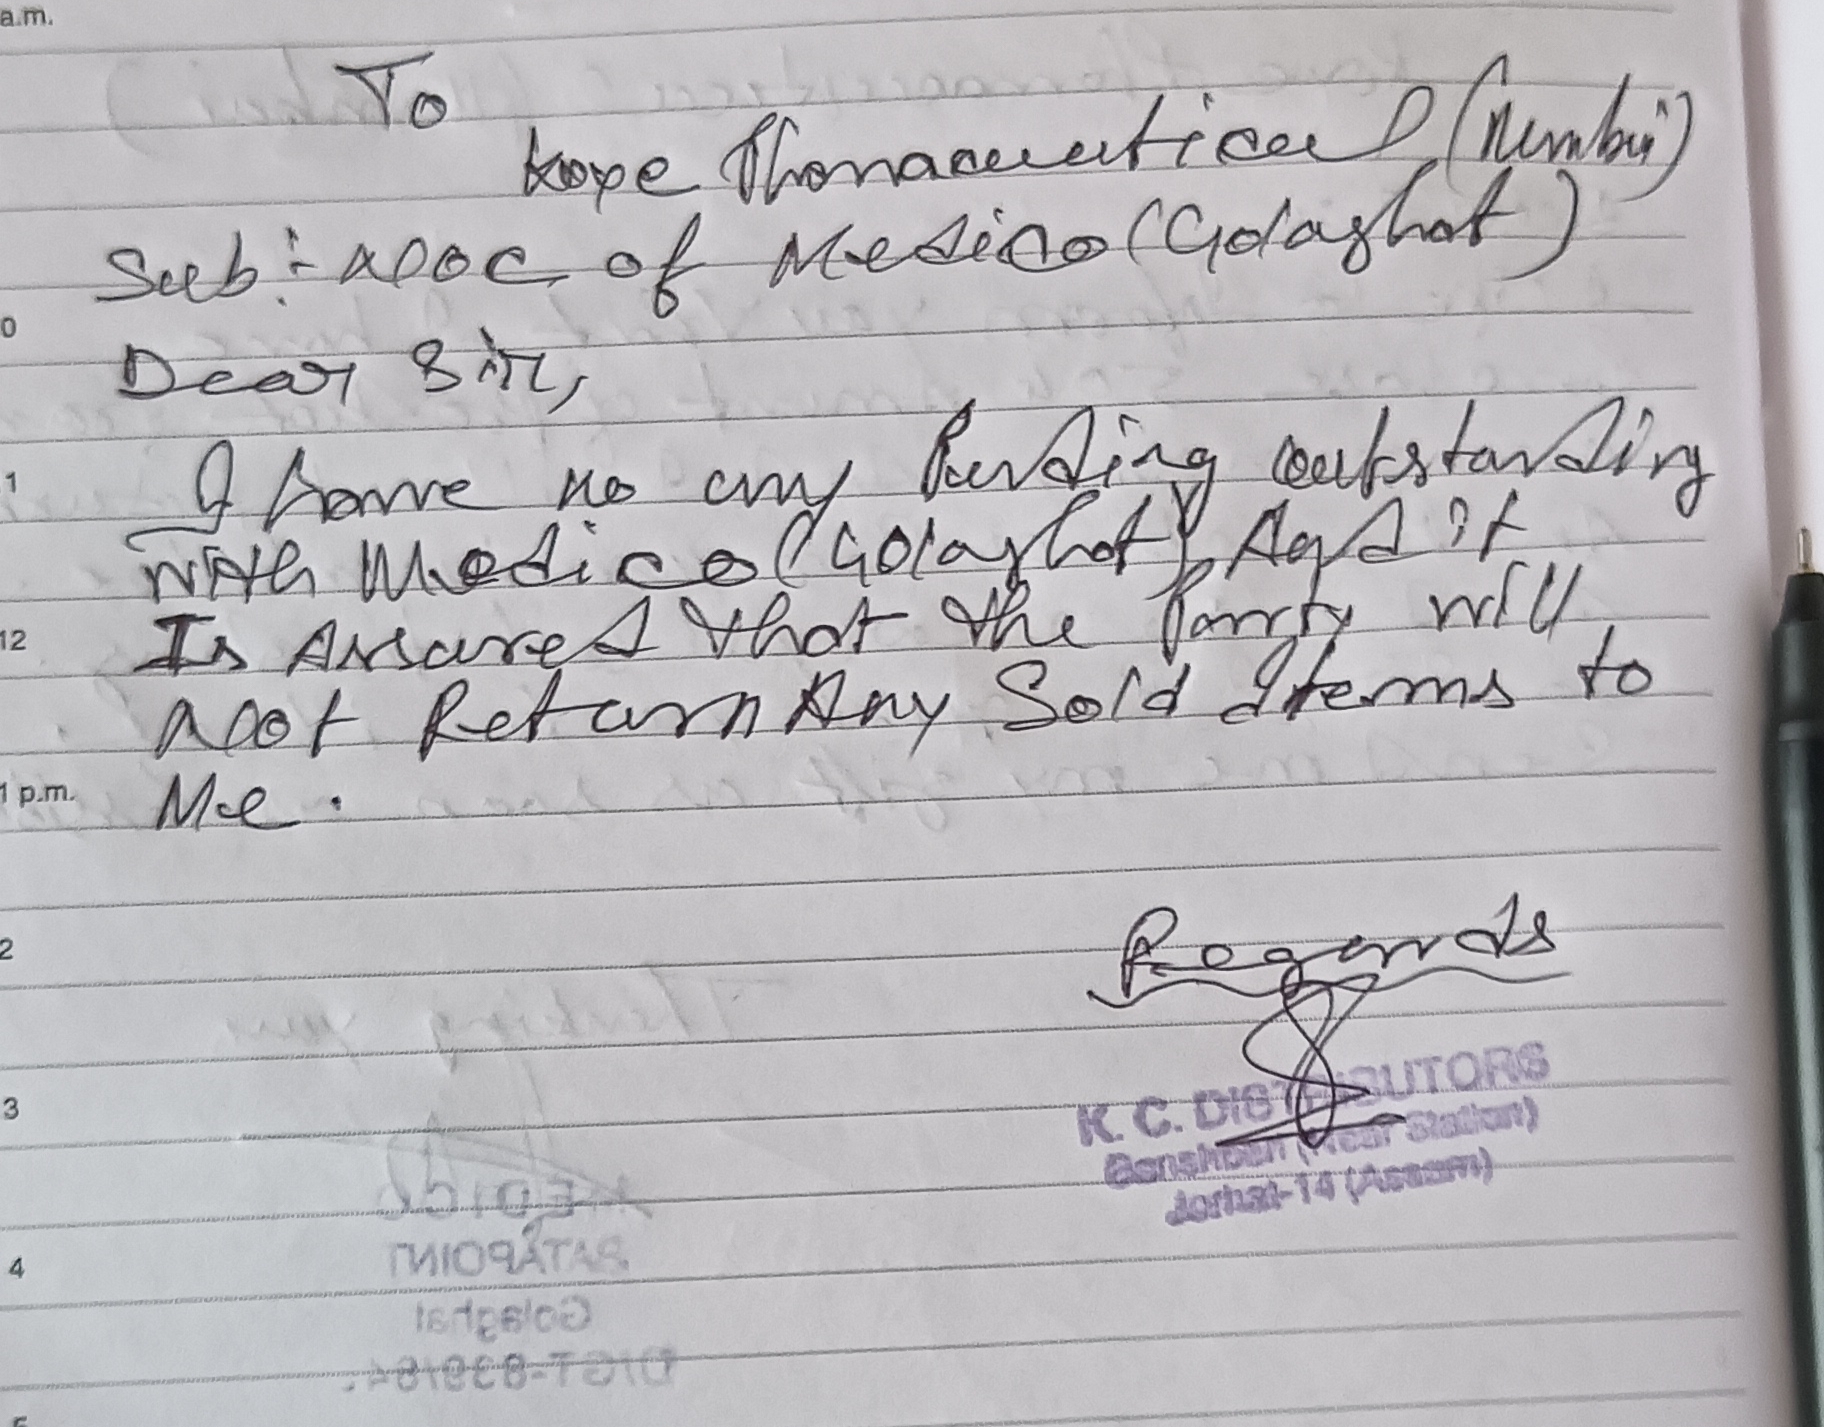 a.m.
To
Kope Pharmaceutical (Mumbai)
Sub:- NOC of Medico (Golaghat)
0
Dear Sir,
1
I have no any Pending outstanding
with Medico (Golaghat) And it
12
Is Assured that the Party will
Not Return Any Sold Items to
1 p.m.
Me.
2
Regards
3
K. C. DISTRIBUTORS
(Near Station)
Jorhat-14 (Assam)
MEDICO
BATAPOINT
4
Golaghat
5